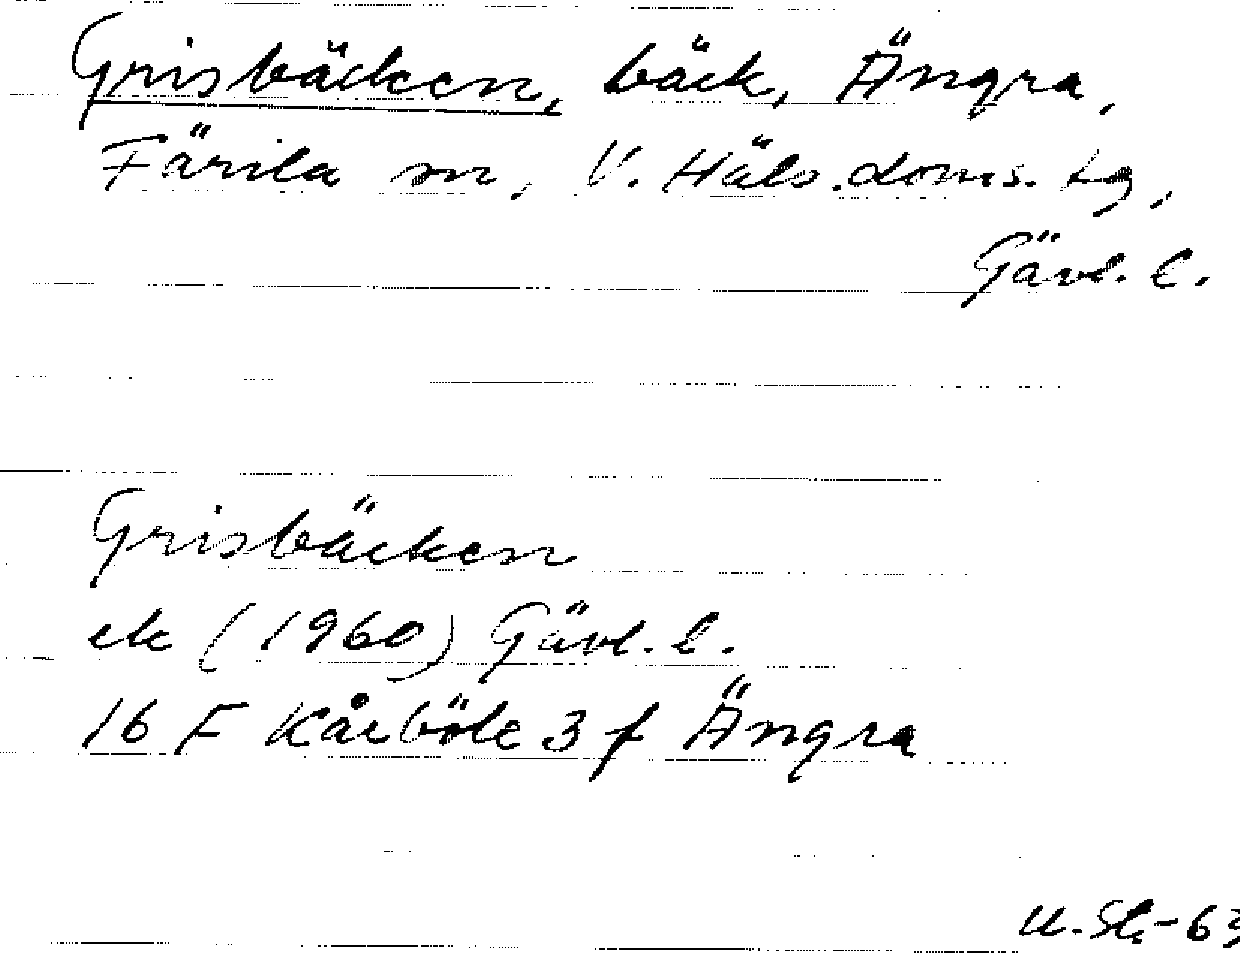 Grisbäcken, bäck, Ängra,
Färila sn, V. Häls. doms. tg,
Gävl. l.
Grisbäcken
ek (1960) Gävl. l.
16 F Kårböle 3 f Ängra
-63